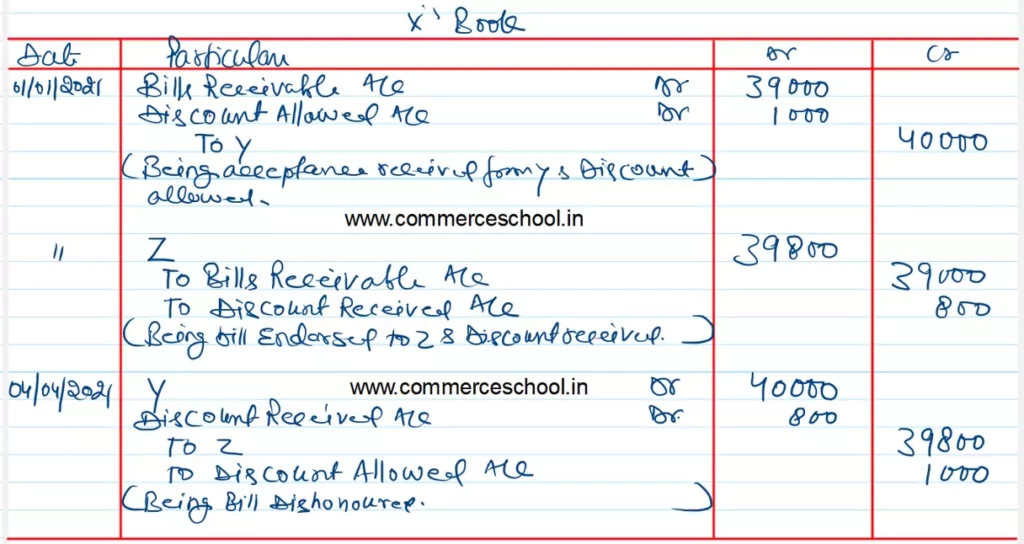 X's Book
Date Particular Dr Cr
01/01/2021 Bills Receivable A/c Dr 39000
Discount Allowed A/c Dr 1000
To Y 40000
(Being acceptance received from y & Discount)
allowed.
www.commerceschool.in
" Z 39800
To Bills Receivable A/c 39000
To Discount Received A/c 800
(Being bill Endorsed to Z & Discount received.)
04/04/2021 Y www.commerceschool.in Dr 40000
Discount Received A/c Dr. 800
To Z 39800
To Discount Allowed A/c 1000
(Being Bill Dishonoured.)